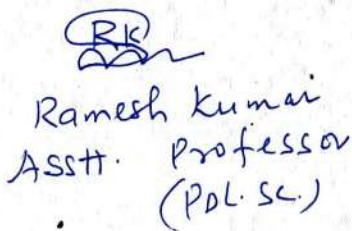 RK
Ramesh Kumar
ASStt. Professor
(Pol. Sc.)